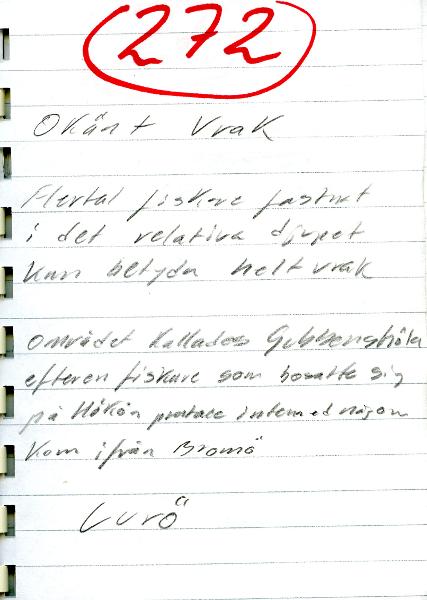 272
Okänt Vrak
Flertal fiskare fastnat
i det relativa djupet
kan betyda helt vrak
området Kallades Gubbens håla
efter en fiskare som bosatte sig
på Hökön pratade inte med någon
Kom ifrån Bromö
Lurö